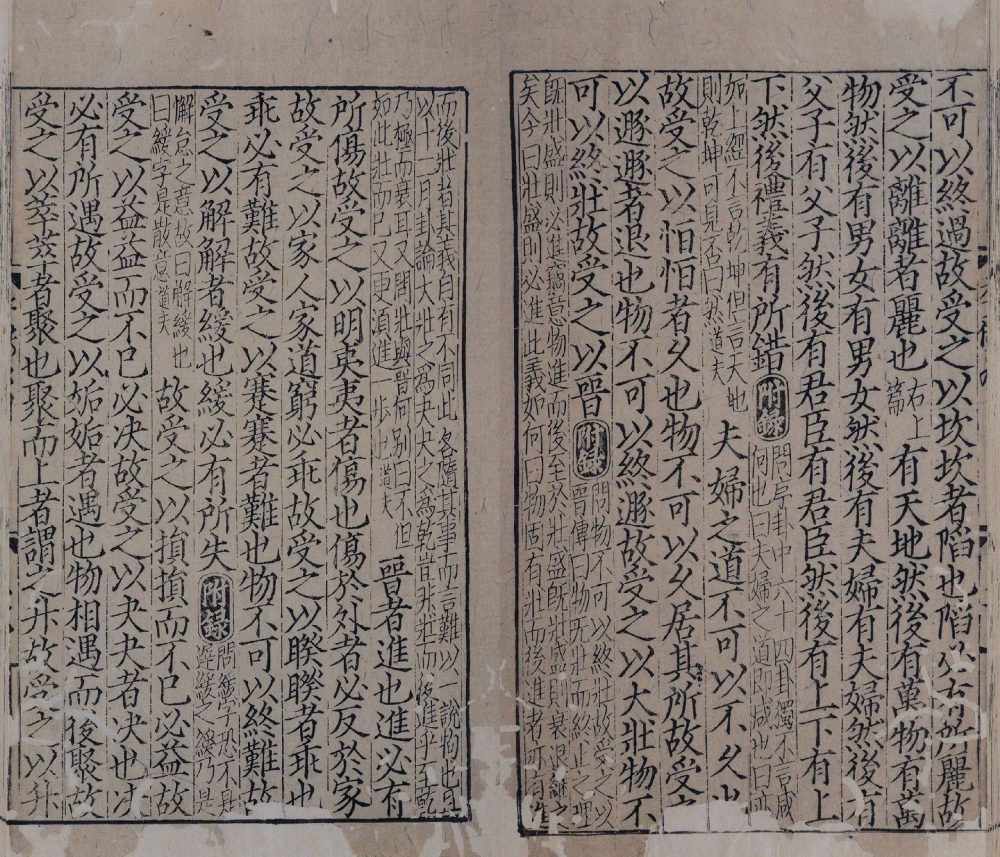 不可以終過故受之以坎坎者陷也陷必有所麗故
受之以離離者麗也右上篇有天地然後有萬物有萬
物然後有男女有男女然後有夫婦有夫婦然後有
父子有父子然後有君臣有君臣然後有上下有上
下然後禮義有所錯附錄問序卦中六十四卦獨不言咸何也曰夫婦之道即咸也曰亦
如上經不言乾坤但言天地則乾坤可見否曰然道夫夫婦之道不可以不久也
故受之以恒恒者久也物不可以久居其所故受之
以遯遯者退也物不可以終遯故受之以大壯物不
可以終壯故受之以晉附錄問物不可以終壯故受之以晉傳曰物无壯而終止之理
旣壯盛則必進竊意物進而後至於壯盛旣壯盛則衰退繼之矣今曰壯盛則必進此義如何曰物固有壯而後進者亦有進
而後壯者其義自有不同此各隨其事而言難以一說拘也且以十二月卦論大壯之爲夬夬之爲乾豈非壯而後進乎至乾
乃極而衰耳又問壯與晉何別曰不但如此壯而已又更須進一步也道夫晉者進也進必有
所傷故受之以明夷夷者傷也傷於外者必反於家
故受之以家人家道窮必乖故受之以睽睽者乖也
乖必有難故受之以蹇蹇者難也物不可以終難故
受之以解解者緩也緩必有所失附錄問緩字恐不是遲緩之緩乃是
懈怠之意故曰解緩也曰緩字是散意道夫故受之以損損而不已必益故
受之以益益而不已必决故受之以夬夬者决也决
必有所遇故受之以姤姤者遇也物相遇而後聚故
受之以萃萃者聚也聚而上者謂之升故受之以升